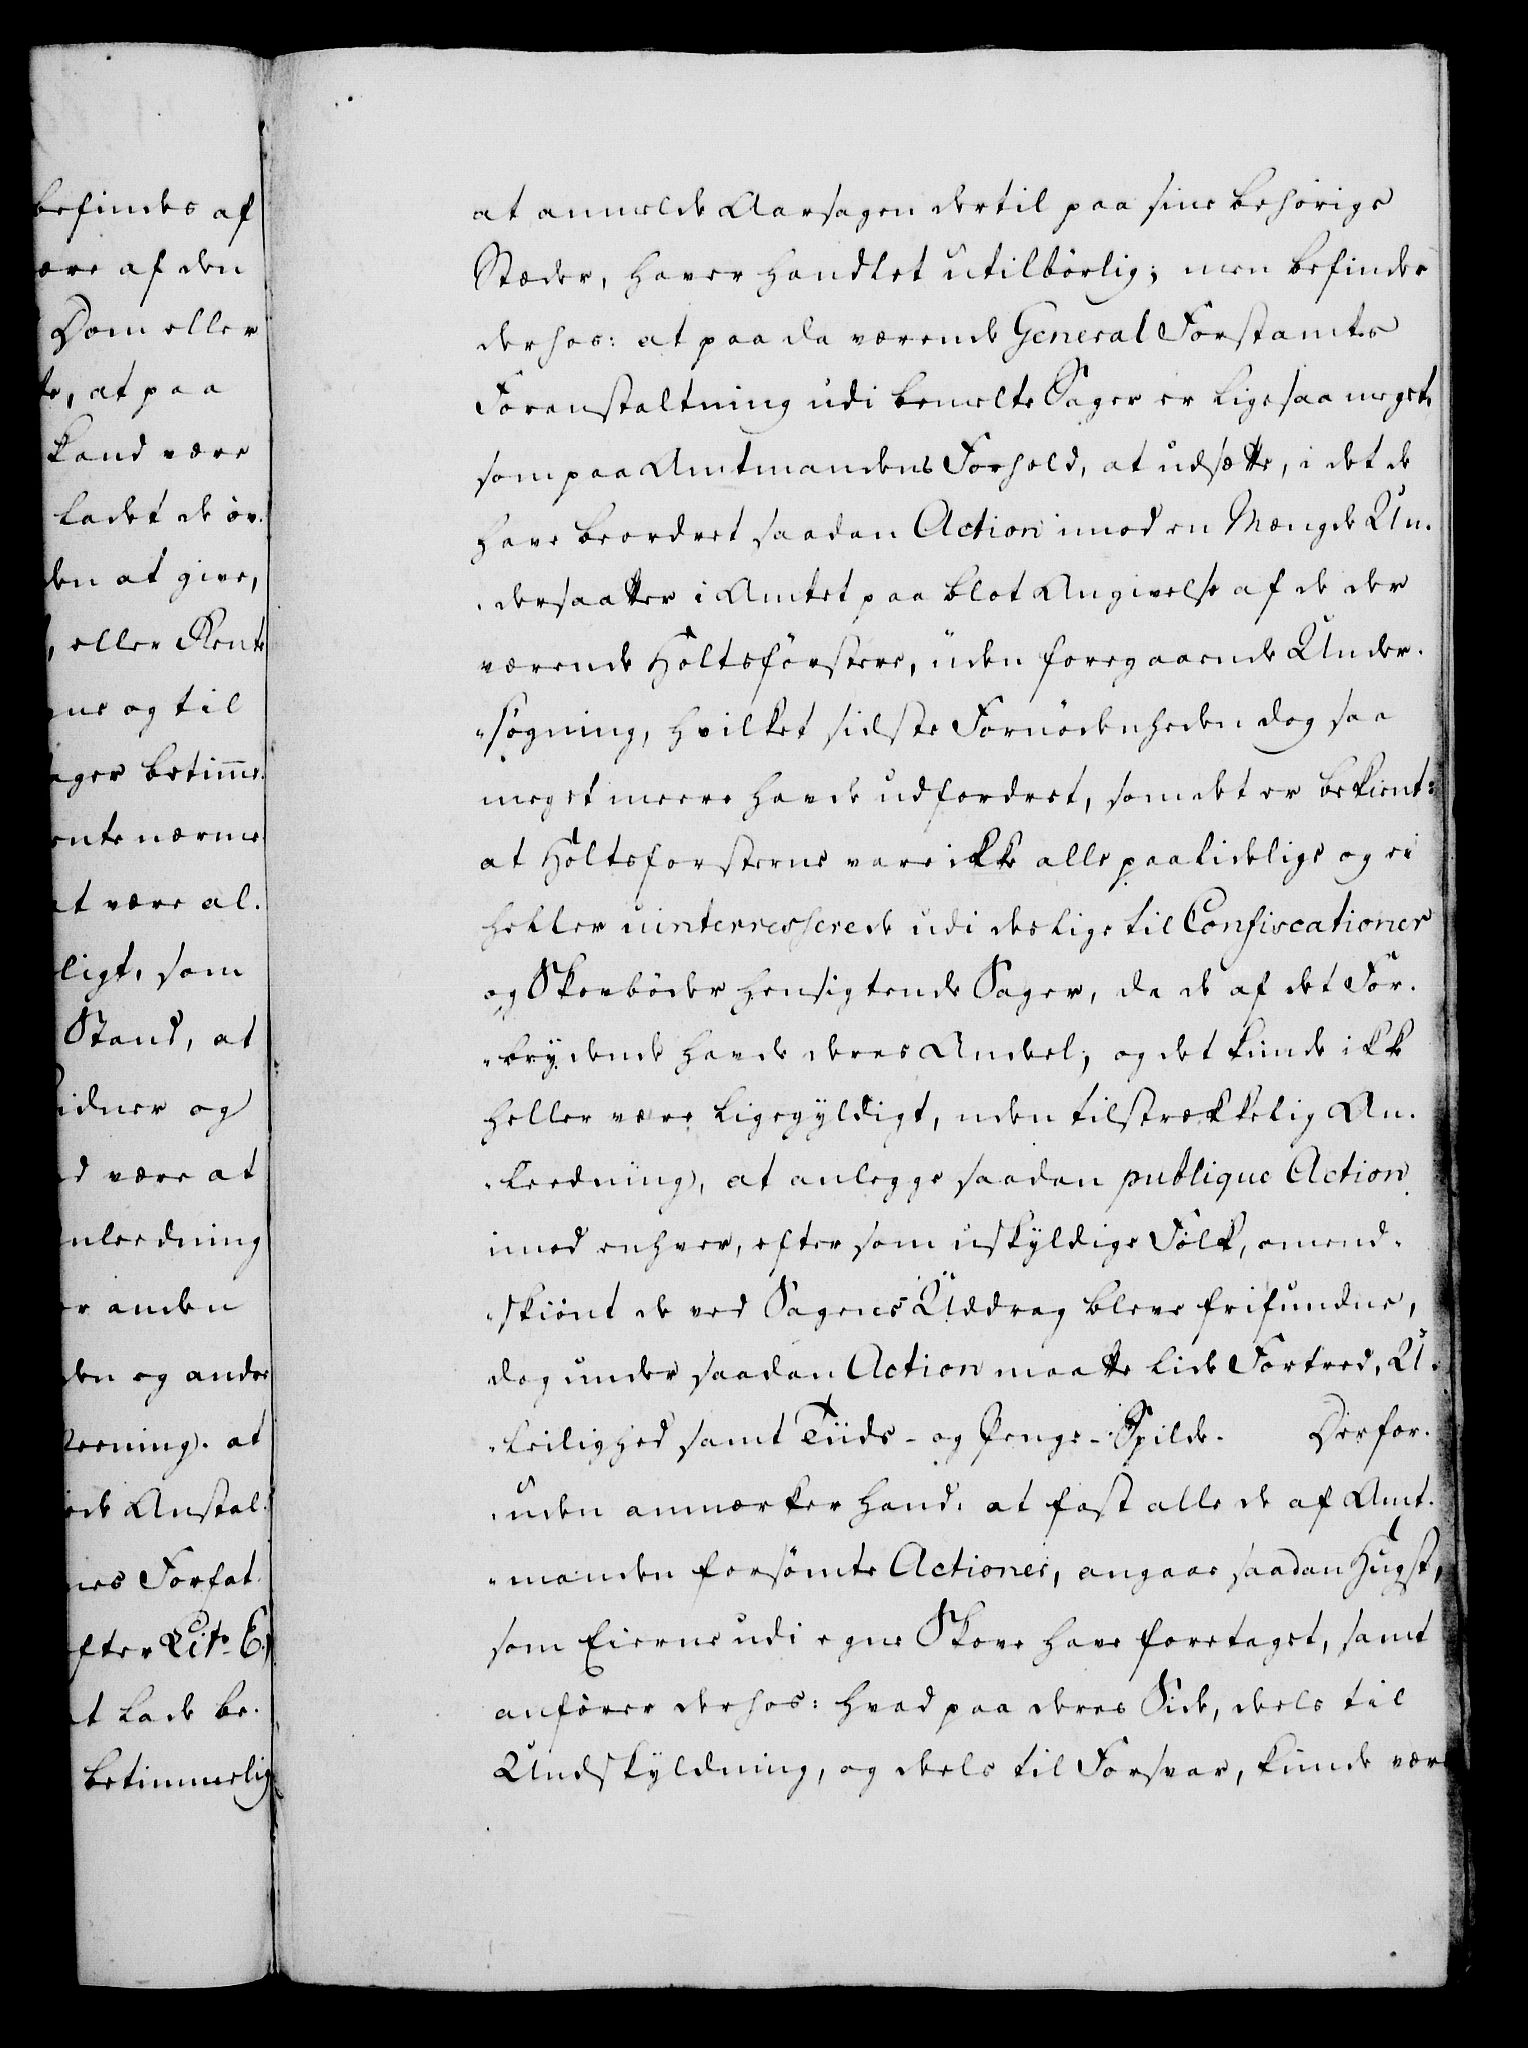 befindes af
ære af den
Dom eller
te, at paa
kand være
ladet de öv-
den at give,
, eller Rente
gne og til
ager betimme-
ente nærme-
at være al-
ligt, som
Stand, at
idner og
d være at
nleedning
er anden
den og andre
eening. at
ede Anstal-
nes Forfat-
fter Lit. E,
at lade be-
betimmelig
at anmelde Aarsagen dertil paa sine behörige
Stæder, haver handlet utilbörlig; men befinder
derhos: at paa da værende General Forstamts
Foranstaltning udi bemelte Sager er ligesaa meget,
som paa Amtmandens Forhold, at udsætte, i det de
have beordret saadan Action imod en Mængde Un-
-dersaatter i Amtet paa blot Angivelse af de der
værende Holtsförstere, uden foregaaende Under-
-sögning, hvilket sidste Fornödenheden dog saa
meget meere havde udfordret, som det er bekient:
at Holtsforsterne vare ikke alle paalidelige og ei
heller uinterresserede udi deslige til Confiscationer
og Skovböder hensigtende Sager, da de af det For-
-brydende havde deres Andeel; og det kunde ikke
heller være ligegyldigt, uden tilstrækkelig An-
-leedning, at anlegge saadan publique Action
imod enhver, eftersom uskyldige Folk, omend-
-skiönt de ved Sagens Uddrag bleve frifundne,
dog under saadan Action maatte lide Fortred, U-
-leilighed samt Tiids- og Penge-Spilde. Derfor-
-uden anmærker hand, at fast alle de af Amt-
-manden forsömte Actioner, angaae saadan Hugst,
som Eierne udi egne Skove have foretaget, samt
anförer derhos: hvad paa deres Side, deels til
Undskyldning, og deels til Forsvar, kunde være